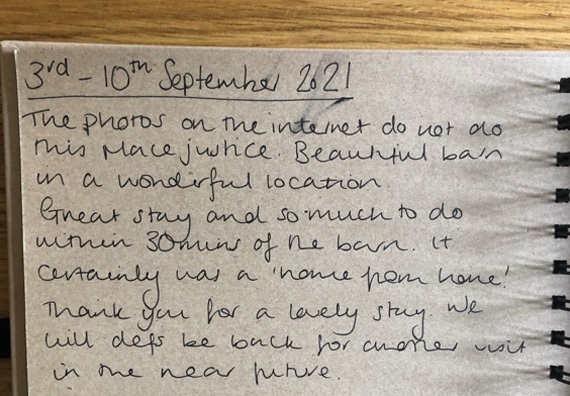 3rd - 10th September 2021
The photos on the internet do not do
this place justice. Beautiful barn
in a wonderful location.
Great stay and so much to do
within 30mins of the barn. It
certainly was a 'home from home'
Thank you for a lovely stay. We
will defs be back for another visit
in the near future.